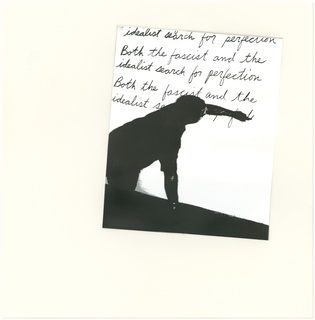 idealist search for perfection
Both the fascist and the
idealist search for perfection
Both the fascist and the
idealist